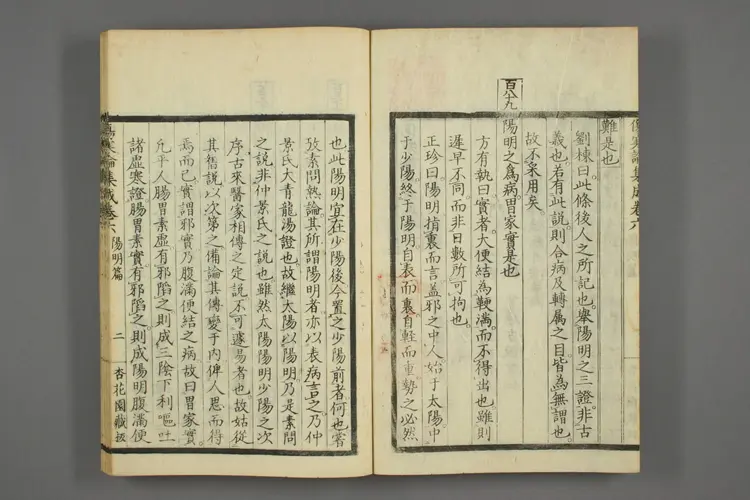 難是也
劉棟曰此條後人之所記也舉陽明之三證非古
義也若有此說則合病及轉属之目皆為無謂也
故不采用矣
百八十九
陽明之爲病胃家實是也
方有執曰實者大便結為鞕滿而不得出也雖則
遲早不同而非日數所可拘也
正珍曰陽明指裏而言蓋邪之中人始于太陽中
于少陽終于陽明自表而裏自輕而重勢之必然
也此陽明宜在少陽後今置之少陽前者何也嘗
攷素問熱論其所謂陽明者亦以表病言之乃仲
景氏大青龍湯證也故繼太陽以陽明乃是素問
之說非仲景氏之說也雖然太陽陽明少陽之次
序古來醫家相傳之定說不可遽易者也故姑從
其舊說以次第之備論其傳變于內俾人思而得
焉而已實謂邪實乃腹滿便結之病故曰胃家實
凡平人腸胃素虛有邪陷之則成三陰下利嘔吐
諸虛寒證腸胃素實有邪陷之則成陽明腹滿便
論集成卷六
陽明篇
二
杏花園藏板